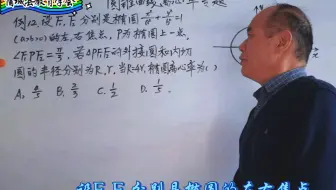 例12.设F₁F₂分别是椭圆x²/a²+y²/b²=1
(a>b>0)的左、右焦点,P为椭圆上一点,
∠F₁PF₂=π/3,若△PF₁F₂的外接圆和内切
圆的半径分别为R,r,当R=4r,椭圆离心率为()
A. 4/5 B. 2/3 C. 1/2 D. 1/5.
设F₁F₂分别是椭圆的左右焦点